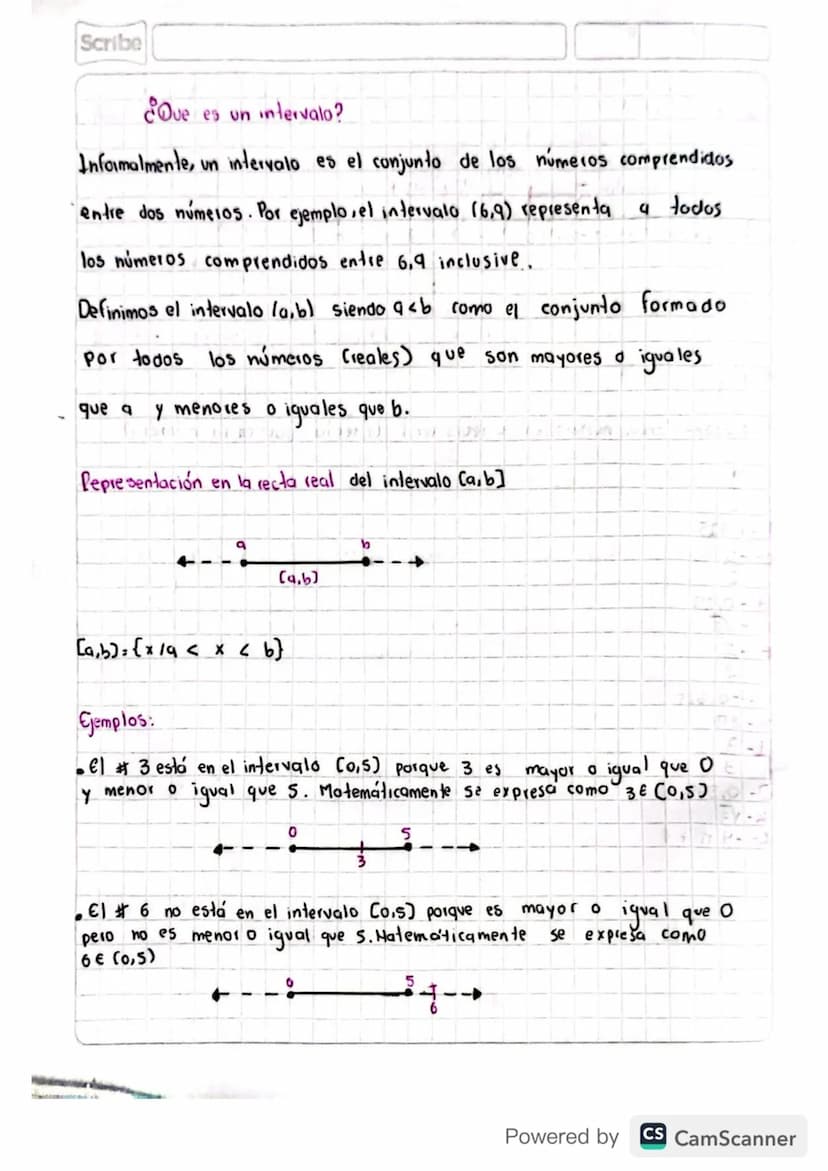 Scribe
¿Que es un intervalo?
Informalmente, un intervalo es el conjunto de los números comprendidos
entre dos números. Por ejemplo, el intervalo (6,9) representa a todos
los números comprendidos entre 6,9 inclusive.
Definimos el intervalo (a,b) siendo a<b como el conjunto formado
por todos los números (reales) que son mayores o iguales
que a y menores o iguales que b.
Representación en la recta real del intervalo [a,b]
a b
[a,b]
[a,b]={x/a < x < b}
Ejemplos:
• El # 3 está en el intervalo [0,5] porque 3 es mayor o igual que 0
y menor o igual que 5. Matemáticamente se expresa como 3∈[0,5]
0 5
3
• El # 6 no está en el intervalo [0,5] porque es mayor o igual que 0
pero no es menor o igual que 5. Matemáticamente se expresa como
6∈[0,5)
0 5
6
Powered by CS CamScanner